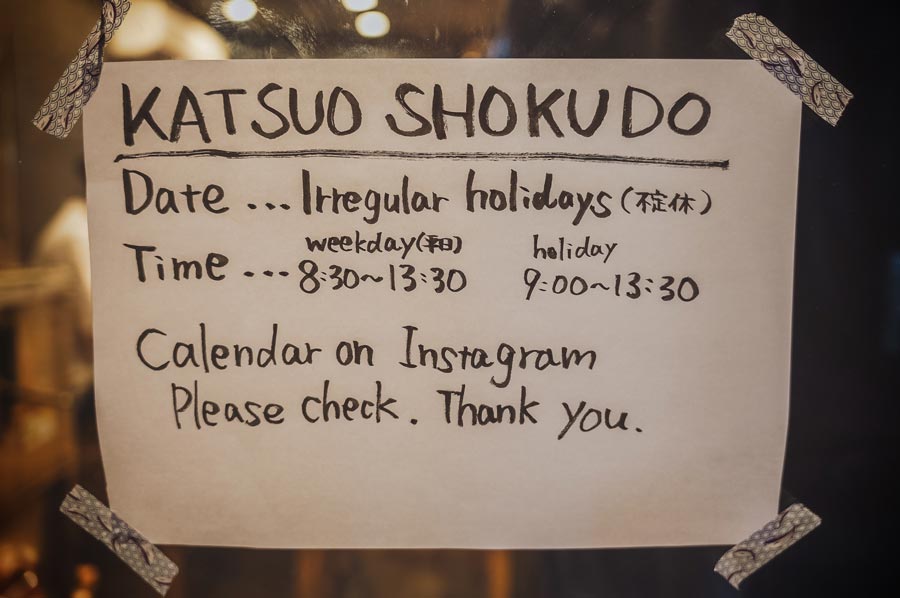 KATSUO SHOKUDO
Date ... Irregular holidays (不定休)
weekday(平日) holiday
Time ... 8:30~13:30 9:00~13:30
Calendar on Instagram
Please check. Thank you.